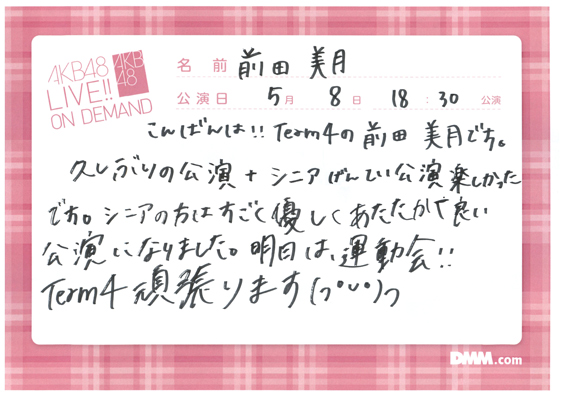 AKB48
LIVE!!
ON DEMAND
AKB
48
名 前 前田 美月
公演日 5月 8日 18:30 公演
こんばんは!! Term4の前田 美月です。
久しぶりの公演+シニアげんてい公演楽しかった
です。シニアの方はすごく優しくあたたかで良い
公演になりました。明日は、運動会!!
Term4 頑張ります(っ•ᴗ•)っ
DMM.com